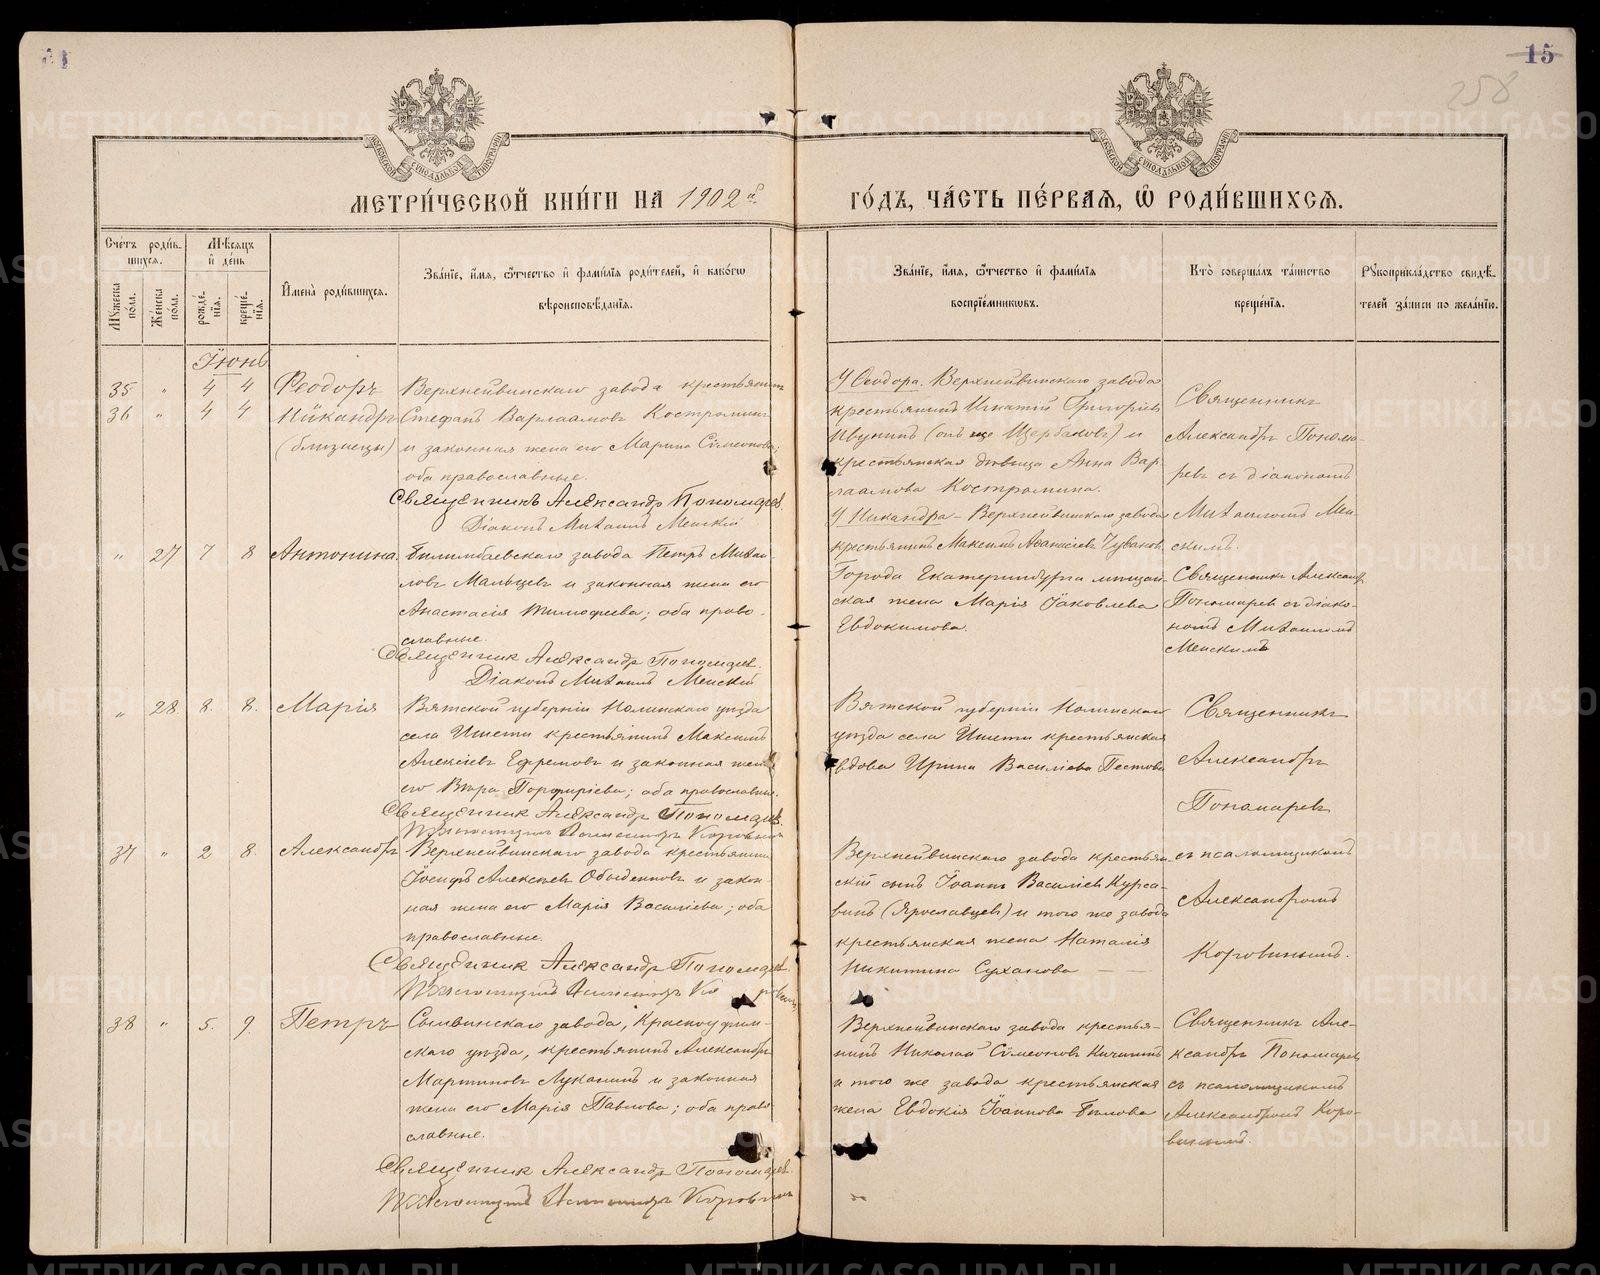 15
258
МЕТРИ́ЧЕСКОЙ КНИ́ГИ НА 1902 й
ГО́ДЪ, ЧА́СТЬ ПЕ́РВАѦ, Ѽ РОДИ́ВШИХСѦ.
Сче́тъ роди́в-
шихсѧ.
Мѣ́сѧцъ
и҆ де́нь
Мꙋ́жеска по́ла.
Же́нска по́ла.
рожде́-
нїѧ.
креще́-
нїѧ.
И҆мена̀ роди́вшихсѧ.
Зва́нїе, и҆́мѧ, ѻ҆́тчество и҆ фами́лїѧ роди́телей, и҆ како́гѡ
вѣроисповѣ́данїѧ.
Зва́нїе, и҆́мѧ, ѻ҆́тчество и҆ фами́лїѧ
воспрїе́мникѡвъ.
Кто̀ соверша́лъ та́инство
креще́нїѧ.
Рꙋкоприкла́дство свидѣ́-
телей за́писи по жела́нїю.
Іюнь
35 " 4 4 Ѳеодоръ Верхнейвинскаго завода крестьянинъ
36 " 4 4 Никандръ Стефанъ Варлаамовъ Костроминъ
(близнецы) и законная жена его Марина Сѵмеонова;
оба православные.
Священникъ Александр Пономарев.
Діаконъ Михаилъ Менскій
У Ѳеодора. Верхнейвинскаго завода
крестьянинъ Игнатій Григоріев
Ивукинъ (онъ же Щербаковъ) и
крестьянская дѣвица Анна Вар-
лаамова Костромина.
У Никандра – Верхнейвинскаго завода
крестьянинъ Максимъ Аѳанасіевъ Чувашов
Священникъ
Александръ Понома-
ревъ съ діакономъ
Михаиломъ Мен-
скимъ.
" 27 7 8 Антонина. Билимбаевскаго завода Петръ Михаи-
ловъ Мальцевъ и законная жена его
Анастасія Тимофеева; оба право-
славные.
Священник Александр Пономарев.
Діаконъ Михаилъ Менскій
Города Екатеринбурга мѣщан-
ская жена Марія Іаковлева
Евдокимова.
Священникъ Александр
Пономаревъ съ діако-
номъ Михаиломъ
Менскимъ
" 28. 8. 8. Марія Вятской губерніи Нолинскаго уѣзда
села Ишети крестьянинъ Максимъ
Алексіевъ Ефремовъ и законная жена
его Вѣра Порфиріева; оба православные.
Священник Александр Пономарев.
Псаломщикъ Александръ Коровинъ
Вятской губерніи Нолинскаго
уѣзда села Ишети крестьянская
вдова Ирина Василіева Пестова
Священникъ
Александръ
Пономаревъ
37 " 2 8. Александръ Верхнейвинскаго завода крестьянинъ
Іосифъ Алексѣевъ Обыденновъ и закон-
ная жена его Марія Василіева; оба
православные.
Священник Александр Пономарев.
Псаломщикъ Александръ Коровинъ
Верхнейвинскаго завода крестьян-
скій сынъ Іоаннъ Василіевъ Курса-
винъ (Ярославцев) и того же завода
крестьянская жена Наталія
Никитина Суханова
съ псаломщикомъ
Александромъ
Коровинымъ.
38 " 5. 9. Петръ Сылвинскаго завода, Красноуфим-
скаго уѣзда, крестьянинъ Александръ
Мартиновъ Лукашинъ и законная
жена его Марія Павлова; оба право-
славные.
Священник Александр Пономарев.
Псаломщикъ Александръ Коровинъ
Верхнейвинскаго завода крестья-
нинъ Николай Сѵмеоновъ Кичигинъ
и того же завода крестьянская
жена Евдокія Іоаннова Бѣлова
Священникъ Але-
ксандръ Пономаревъ
съ псаломщикомъ
Александромъ Коро-
винымъ.
METRIKI.GASO-URAL.RU